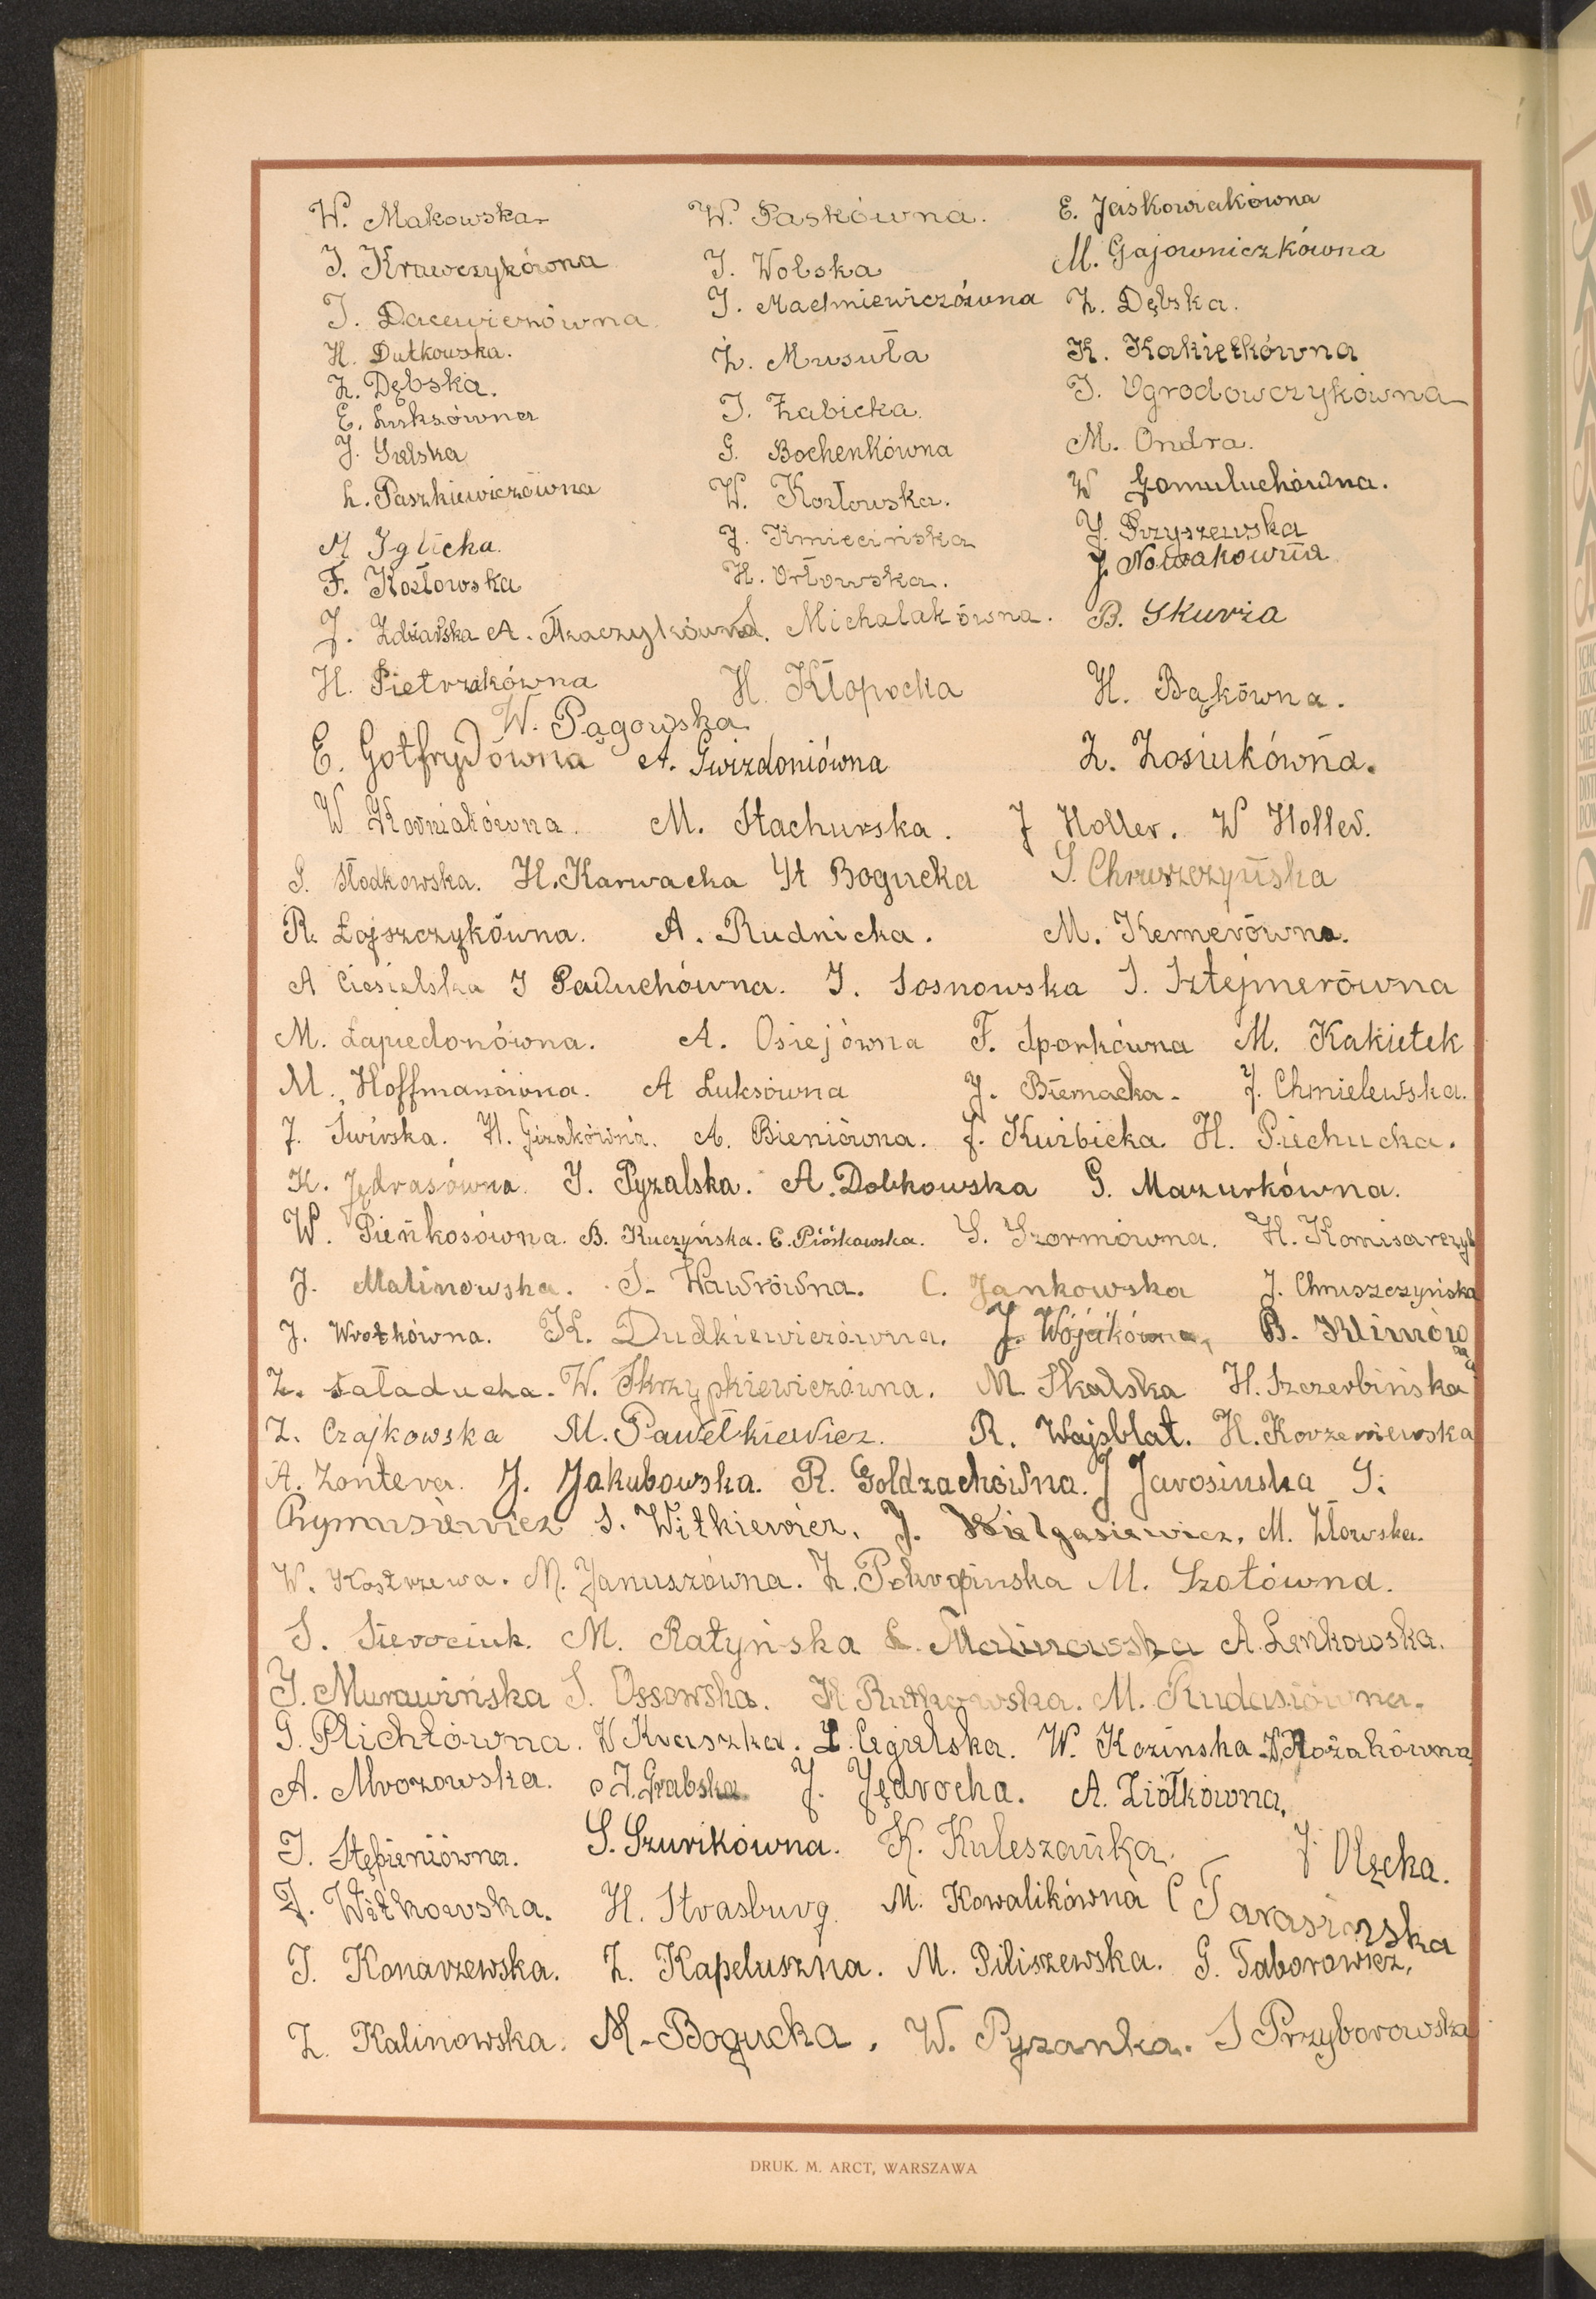 W. Makowska W. Paskówna. E. Jaskowiakówna
J. Krawczykówna J. Wolska M. Gajowniczkówna
J. Dacewiczówna J. Machniewiczówna Z. Dębska.
H. Dutkowska. Z. Musuła K. Kakietkówna
Z. Dębska. J. Żabicka. J. Ogrodowczykówna
E. Luksówna G. Bochenkówna M. Ondra.
J. Gralska W. Kozłowska. W Gomuluchówna.
L. Paszkiewiczówna J. Kmiecińska J. Przyszewska
M Iglicka. H. Orłowska. J. Nowakowna
F. Kozłowska
J. Zdżarska A. Tkaczykówna J. Michalakówna. B. Skurza
H. Pietrzakówna H. Kłopocka H. Bąkówna.
W. Pągowska
E. Gotfrydówna A. Gwizdoniówna Z. Zosiukówna.
W Korniakówna. M. Stachurska. J Holler. W Holler.
S. Słodkowska. H. Karwacka St Bogucka S. Chruszczyńska
R. Łajszczykówna. A. Rudnicka. M. Kernerówna.
A Ciesielska J Paduchówna. J. Sosnowska S. Sztejnerówna
M. Łapiedonówna. A. Osiejówna F. Sporkówna M. Kakietek
M. Hoffmanówna. A Luksówna J. Biernacka. J. Chmielewska.
J. Swirska. H. Gizakówna. A. Bieniówna. J. Kurbicka H. Piechucka.
K. Jędrasówna. J. Pyzalska. A. Dobkowska G. Mazurkówna.
W. Pieńkosówna. B. Kuczyńska. E. Piórkowska. S. Szormówna. H. Komisarczyk
J. Malinowska. S. Wawrówna. C. Jankowska J. Chruszczyńska
J. Wrotkówna. K. Dudkiewiczówna. J. Wójcikówna, B. Klimów
Z. Saładucha. W. Skrzypkiewiczówna. M. Skalska H. Szczerbińska
Z. Czajkowska M. Pawełkiewicz. R. Wajsblat. H. Korzeniewska
A. Zontera. J. Jakubowska. R. Goldzachówna. J Jarosinska S.
Chymusiewicz S. Witkiewicz. J. Walgasiewicz. M. Złowska.
W. Kostrzewa. M. Januszówna. Z. Pokropinska M. Szotówna.
S. Sierociuk. M. Ratyńska L. Malinowska A. Lenkowska.
J. Murawińska S. Ossowska. H Rutkowska. M. Rudasiówna.
G. Plichtówna. W Kraszka. L. Cegielska. W. Kozinska W. Rożakówna
A. Mrozowska. J. Grabska J. Jędrocha. A. Ziółkówna,
J. Stępieniówna. S. Szurikówna. K. Kuleszanka. J Olęcka.
J. Witkowska. H. Strasburg. M. Kowalikówna C Tarasinska
J. Konarzewska. Z. Kapeluszna. M. Piliszewska. G. Taborowicz.
Z. Kalinowska. M. Bogucka. W. Pyzanka. S Przyborowska
DRUK. M. ARCT, WARSZAWA